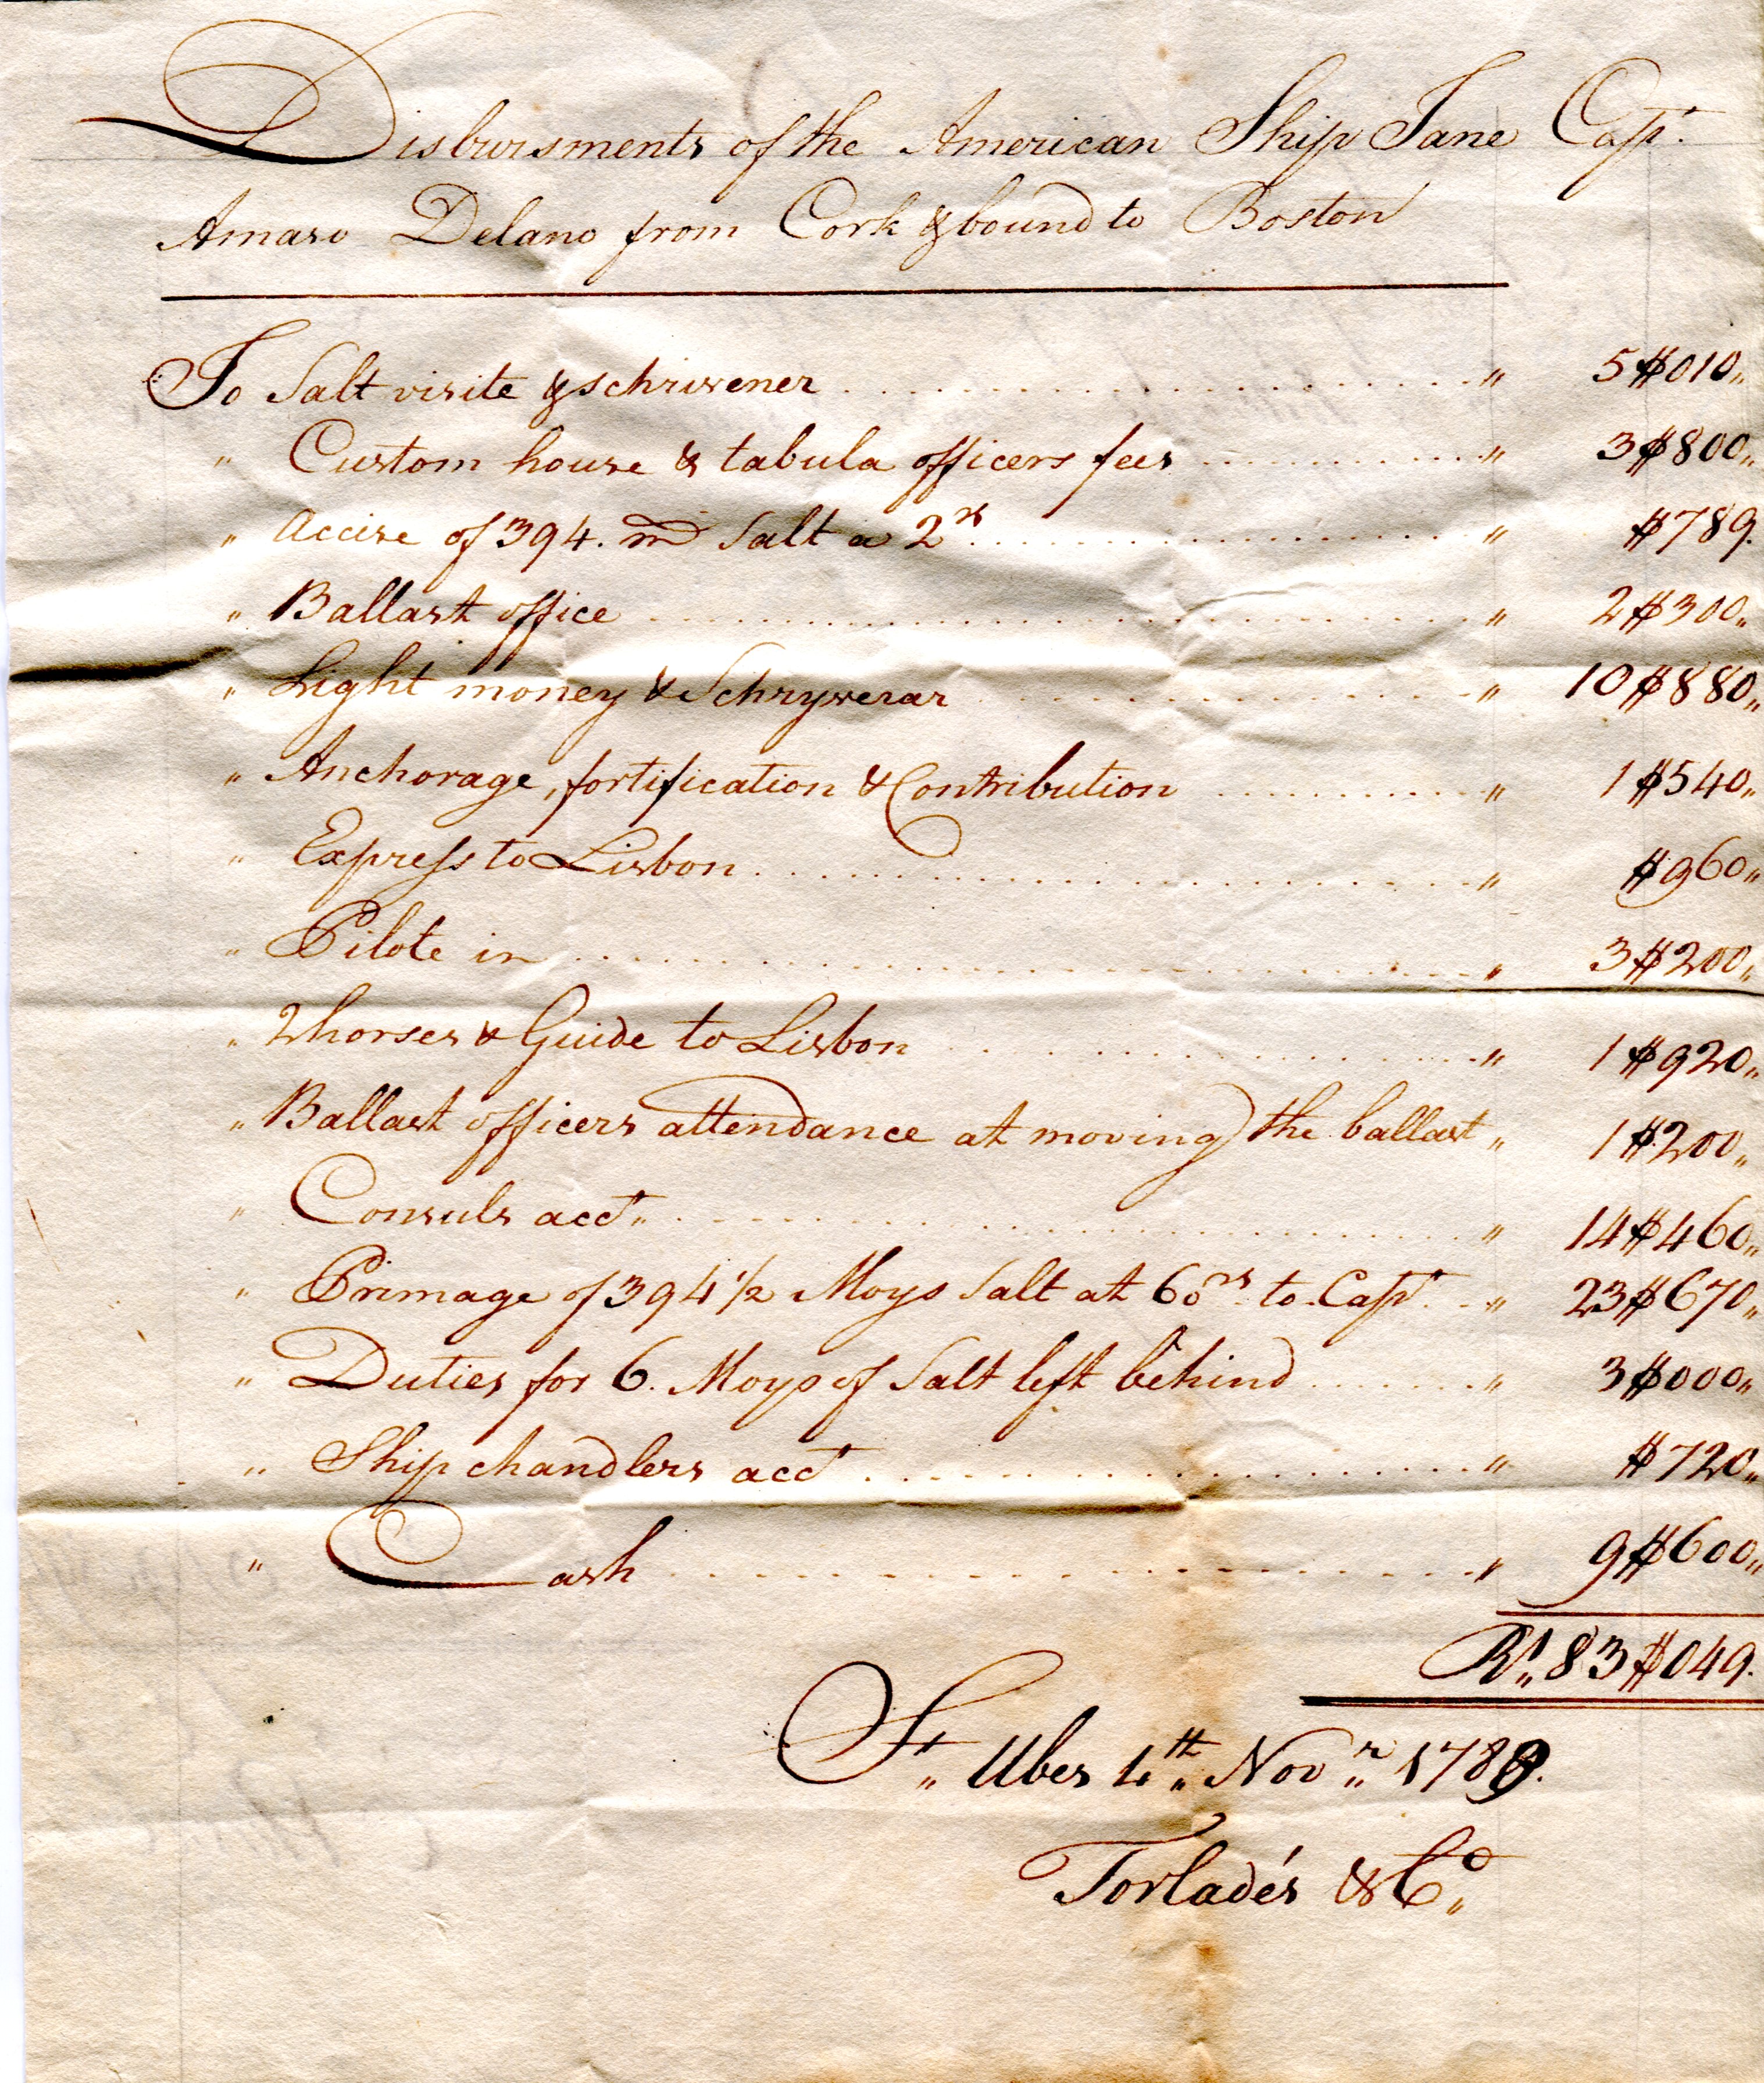 Disbursments of the American Ship Jane Capt.
Amaso Delano from Cork & bound to Boston
To Salt visite & schrivener " 5$010"
" Custom house & tabula officers fees " 3$800"
" Accise of 394. m Salt a 2rs " $789.
" Ballast office " 2$300"
" Light money & Schryverar " 10$880"
" Anchorage, fortification & Contribution " 1$540"
" Express to Lisbon " $960"
" Pilote in " 3$200"
" 2 horses & Guide to Lisbon " 1$920"
" Ballast officers attendance at moving the ballast " 1$200"
" Consuls acct" " 14$460"
" Primage of 394 1/2 Moys Salt at 60rs to Capt. " 23$670"
" Duties for 6. Moys of Salt left behind " 3$000"
" Ship chandlers acct " $720"
" Cash " 9$600"
Rs" 83$049.
St" Ubes 4th" Novr" 1789.
Torladés & Co"